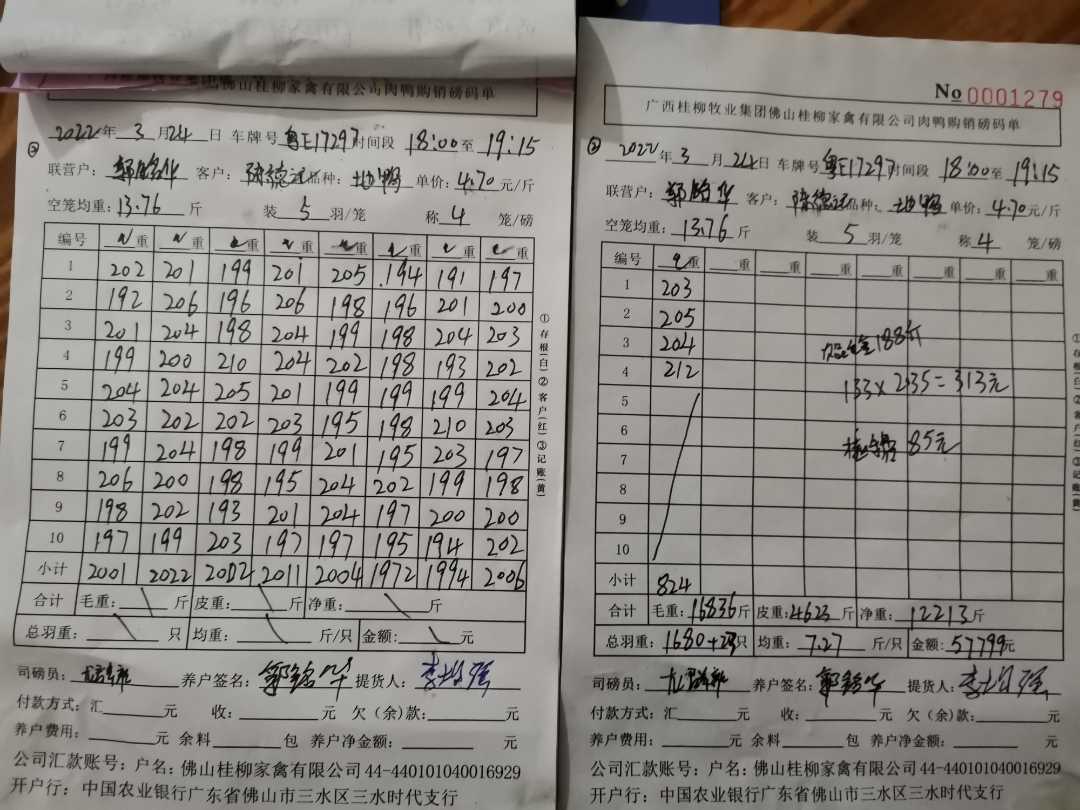 佛山桂柳家禽有限公司肉鸭购销磅码单
2022年3月24日 车牌号 粤E17297 时间段 18:00至19:15
联营户： 客户：陆德 品种： 单价：4.70元/斤
空笼均重：13.76斤 装5羽/笼 称4笼/磅
编号 重 重 重 重 重 重 重 重
1 202 201 199 201 205 194 191 197
2 192 206 196 206 198 196 201 200
3 201 204 198 204 199 198 204 203
4 199 200 210 204 202 198 193 202
5 204 204 205 201 199 199 199 204
6 203 202 202 203 195 198 210 203
7 199 204 198 199 201 195 203 197
8 206 200 198 195 204 202 199 198
9 198 202 193 201 204 197 200 200
10 197 199 203 197 197 195 194 202
小计 2001 2022 2002 2011 2004 1972 1994 2006
合计 毛重： 斤 皮重： 斤 净重： 斤
总羽重： 只 均重： 斤/只 金额： 元
司磅员： 养户签名：郭铭华 提货人：
付款方式：汇 元 收： 元 欠（余）款： 元
养户费用： 元 余料 包 养户净金额： 元
公司汇款账号：户名：佛山桂柳家禽有限公司44-440101040016929
开户行：中国农业银行广东省佛山市三水区三水时代支行
①存根（白）②客户（红）③记账（黄）
No 0001279
广西桂柳牧业集团佛山桂柳家禽有限公司肉鸭购销磅码单
2022年3月24日 车牌号 粤E17297 时间段 18:00至19:15
联营户：郭铭华 客户：陆德 品种： 单价：4.70元/斤
空笼均重：13.76斤 装5羽/笼 称4笼/磅
编号 重 重 重 重 重 重 重 重
1 203
2 205
3 204 188斤
4 212
5 133×2.35=313元
6
7 85元
8
9
10
小计 824
合计 毛重：16836斤 皮重：4623斤 净重：12213斤
总羽重：1680+ 只 均重：7.27斤/只 金额：57799元
司磅员： 养户签名：郭铭华 提货人：
付款方式：汇 元 收： 元 欠（余）款： 元
养户费用： 元 余料 包 养户净金额： 元
公司汇款账号：户名：佛山桂柳家禽有限公司44-440101040016929
开户行：中国农业银行广东省佛山市三水区三水时代支行
①存根（白）②客户（红）③记账（黄）